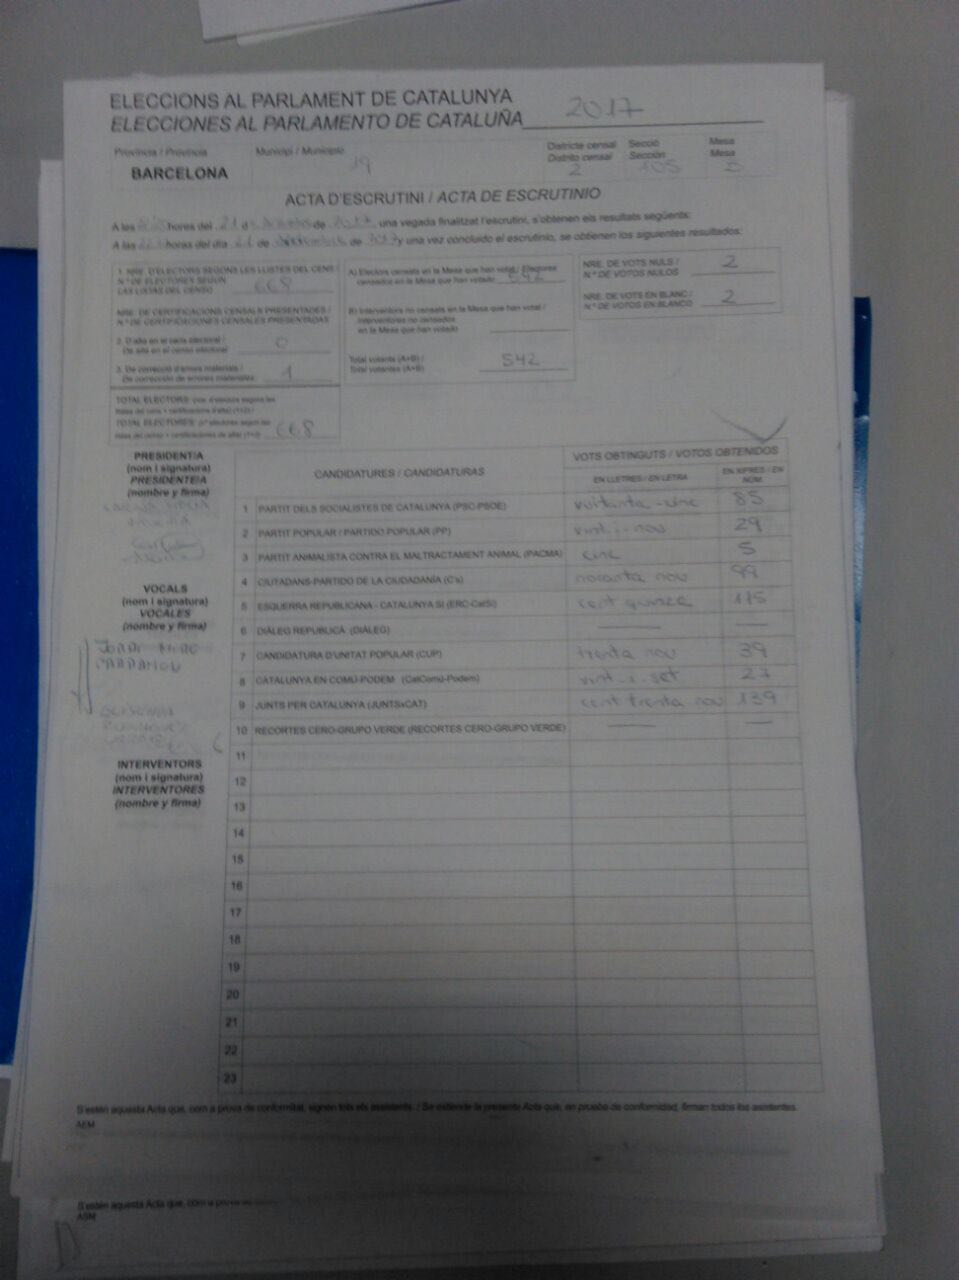 ELECCIONS AL PARLAMENT DE CATALUNYA
ELECCIONES AL PARLAMENTO DE CATALUÑA 2017
Província / Provincia
BARCELONA
Municipi / Municipio
19
Districte censal
Distrito censal
2
Secció
Sección
105
Mesa
Mesa
B
ACTA D'ESCRUTINI / ACTA DE ESCRUTINIO
A les hores del 21 d de 2017, una vegada finalitzat l'escrutini, s'obtenen els resultats següents:
A las horas del día 21 de de 2017 y una vez concluido el escrutinio, se obtienen los siguientes resultados:
1. NRE. D'ELECTORS SEGONS LES LLISTES DEL CENS /
N.º DE ELECTORES SEGÚN
LAS LISTAS DEL CENSO 668
NRE. DE CERTIFICACIONS CENSALS PRESENTADES /
N.º DE CERTIFICACIONES CENSALES PRESENTADAS
2. D'alta en el cens electoral /
De alta en el censo electoral 0
3. De correcció d'errors materials /
De corrección de errores materiales 1
TOTAL ELECTORS (nre. d'electors segons les
llistes del cens + certificacions d'alta) (1+2) /
TOTAL ELECTORES (n.º electores según las
listas del censo + certificaciones de alta) (1+2) 668
A) Electors censats en la Mesa que han votat / Electores
censados en la Mesa que han votado 542
B) Interventors no censats en la Mesa que han votat /
Interventores no censados
en la Mesa que han votado
Total votants (A+B) /
Total votantes (A+B) 542
NRE. DE VOTS NULS /
N.º DE VOTOS NULOS 2
NRE. DE VOTS EN BLANC /
N.º DE VOTOS EN BLANCO 2
PRESIDENT/A
(nom i signatura)
PRESIDENTE/A
(nombre y firma)
VOCALS
(nom i signatura)
VOCALES
(nombre y firma)
JORDI
INTERVENTORS
(nom i signatura)
INTERVENTORES
(nombre y firma)
CANDIDATURES / CANDIDATURAS
VOTS OBTINGUTS / VOTOS OBTENIDOS
EN LLETRES / EN LETRA
EN XIFRES / EN NÚM.
1 PARTIT DELS SOCIALISTES DE CATALUNYA (PSC-PSOE) vuitanta-cinc 85
2 PARTIT POPULAR / PARTIDO POPULAR (PP) vint-i-nou 29
3 PARTIT ANIMALISTA CONTRA EL MALTRACTAMENT ANIMAL (PACMA) cinc 5
4 CIUTADANS-PARTIDO DE LA CIUDADANÍA (C's) noranta nou 99
5 ESQUERRA REPUBLICANA - CATALUNYA SÍ (ERC-CatSí) cent quinze 115
6 DIÀLEG REPUBLICÀ (DIÀLEG) — —
7 CANDIDATURA D'UNITAT POPULAR (CUP) trenta nou 39
8 CATALUNYA EN COMÚ-PODEM (CatComú-Podem) vint-i-set 27
9 JUNTS PER CATALUNYA (JUNTSxCAT) cent trenta nou 139
10 RECORTES CERO-GRUPO VERDE (RECORTES CERO-GRUPO VERDE) — —
11
12
13
14
15
16
17
18
19
20
21
22
23
S'estén aquesta Acta que, com a prova de conformitat, signen tots els assistents. / Se extiende la presente Acta que, en prueba de conformidad, firman todos los asistentes.
AEM
S'estén aquesta Acta que, com a prova de
ASM